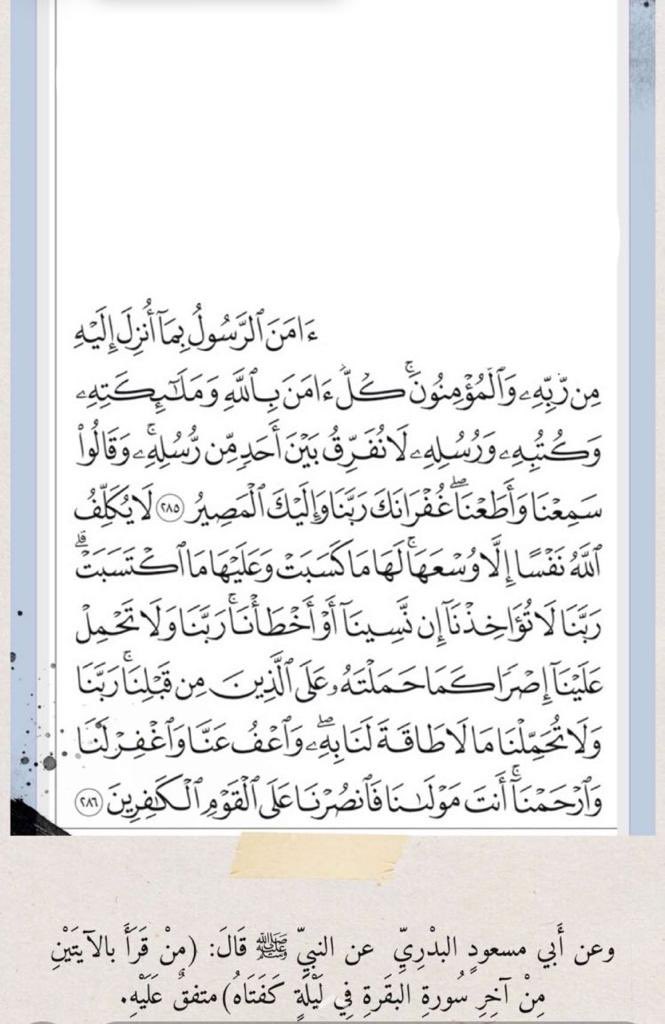 ءَامَنَ ٱلرَّسُولُ بِمَآ أُنزِلَ إِلَيْهِ
مِن رَّبِّهِۦ وَٱلْمُؤْمِنُونَۚ كُلٌّ ءَامَنَ بِٱللَّهِ وَمَلَـٰٓئِكَتِهِۦ
وَكُتُبِهِۦ وَرُسُلِهِۦ لَا نُفَرِّقُ بَيْنَ أَحَدٍ مِّن رُّسُلِهِۦۚ وَقَالُوا۟
سَمِعْنَا وَأَطَعْنَاۖ غُفْرَانَكَ رَبَّنَا وَإِلَيْكَ ٱلْمَصِيرُ ٢٨٥ لَا يُكَلِّفُ
ٱللَّهُ نَفْسًا إِلَّا وُسْعَهَاۚ لَهَا مَا كَسَبَتْ وَعَلَيْهَا مَا ٱكْتَسَبَتْۗ
رَبَّنَا لَا تُؤَاخِذْنَآ إِن نَّسِينَآ أَوْ أَخْطَأْنَاۚ رَبَّنَا وَلَا تَحْمِلْ
عَلَيْنَآ إِصْرًا كَمَا حَمَلْتَهُۥ عَلَى ٱلَّذِينَ مِن قَبْلِنَاۚ رَبَّنَا
وَلَا تُحَمِّلْنَا مَا لَا طَاقَةَ لَنَا بِهِۦۖ وَٱعْفُ عَنَّا وَٱغْفِرْ لَنَا
وَٱرْحَمْنَآۚ أَنتَ مَوْلَىٰنَا فَٱنصُرْنَا عَلَى ٱلْقَوْمِ ٱلْكَـٰفِرِينَ ٢٨٦
وعن أَبي مسعودٍ البدْرِيِّ عن النبيِّ ﷺ قَالَ: (منْ قَرَأَ بالآيتَيْنِ
مِنْ آخِرِ سُورةِ البقَرةِ فِي لَيْلَةٍ كَفَتَاهُ) متفقٌ عَلَيْهِ.